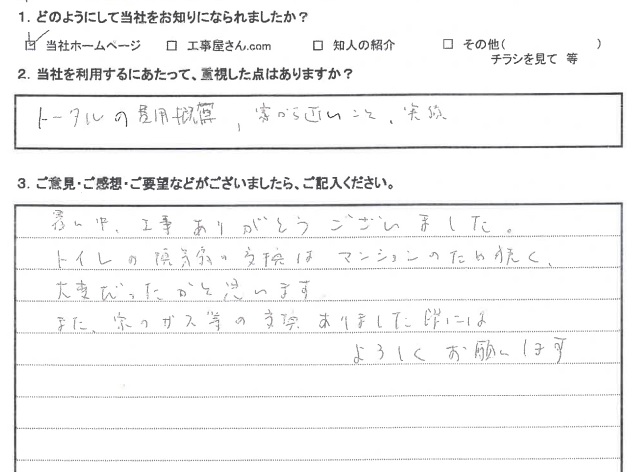 1. どのようにして当社をお知りになられましたか？
☑ 当社ホームページ □ 工事屋さん.com □ 知人の紹介 □ その他( )
チラシを見て 等
2. 当社を利用するにあたって、重視した点はありますか？
トータルの費用概算, 家から近いこと、実績
3. ご意見・ご感想・ご要望などがございましたら、ご記入ください。
暑い中、工事ありがとうございました。
トイレの換気扇の交換は マンションのため狭く、
大変だったかと思います
また、家のガス等の交換 ありました際には
よろしくお願いします